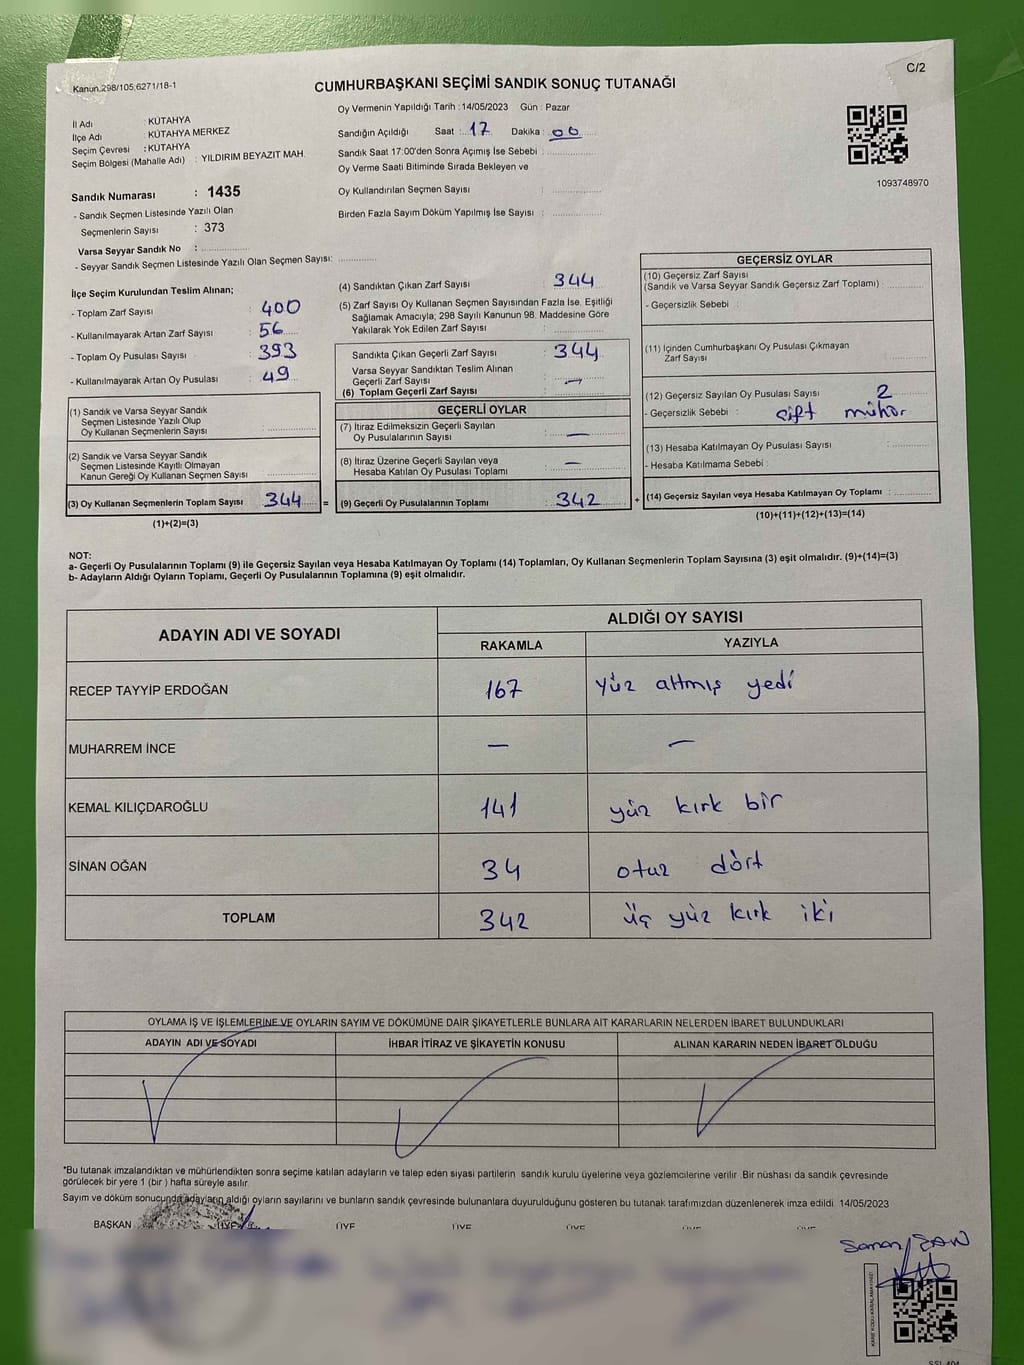 C/2
Kanun,298/105,6271/18-1
CUMHURBAŞKANI SEÇİMİ SANDIK SONUÇ TUTANAĞI
Oy Vermenin Yapıldığı Tarih :14/05/2023 Gün : Pazar
İl Adı : KÜTAHYA
İlçe Adı : KÜTAHYA MERKEZ
Seçim Çevresi : KÜTAHYA
Seçim Bölgesi (Mahalle Adı) : YILDIRIM BEYAZIT MAH.
Sandık Numarası : 1435
- Sandık Seçmen Listesinde Yazılı Olan
Seçmenlerin Sayısı : 373
Varsa Seyyar Sandık No :
- Seyyar Sandık Seçmen Listesinde Yazılı Olan Seçmen Sayısı:
Sandığın Açıldığı Saat : 17 Dakika : 00
Sandık Saat 17:00'den Sonra Açımış İse Sebebi :
Oy Verme Saati Bitiminde Sırada Bekleyen ve
Oy Kullandırılan Seçmen Sayısı :
Birden Fazla Sayım Döküm Yapılmış İse Sayısı :
1093748970
İlçe Seçim Kurulundan Teslim Alınan;
- Toplam Zarf Sayısı : 400
- Kullanılmayarak Artan Zarf Sayısı : 56
- Toplam Oy Pusulası Sayısı : 393
- Kullanılmayarak Artan Oy Pusulası : 49
(1) Sandık ve Varsa Seyyar Sandık
Seçmen Listesinde Yazılı Olup
Oy Kullanan Seçmenlerin Sayısı :
(2) Sandık ve Varsa Seyyar Sandık
Seçmen Listesinde Kayıtlı Olmayan
Kanun Gereği Oy Kullanan Seçmen Sayısı :
(3) Oy Kullanan Seçmenlerin Toplam Sayısı : 344 =
(1)+(2)=(3)
(4) Sandıktan Çıkan Zarf Sayısı : 344
(5) Zarf Sayısı Oy Kullanan Seçmen Sayısından Fazla İse, Eşitliği
Sağlamak Amacıyla; 298 Sayılı Kanunun 98. Maddesine Göre
Yakılarak Yok Edilen Zarf Sayısı :
Sandıkta Çıkan Geçerli Zarf Sayısı : 344
Varsa Seyyar Sandıktan Teslim Alınan
Geçerli Zarf Sayısı : —
(6) Toplam Geçerli Zarf Sayısı :
GEÇERLİ OYLAR
(7) İtiraz Edilmeksizin Geçerli Sayılan
Oy Pusulalarının Sayısı : —
(8) İtiraz Üzerine Geçerli Sayılan veya
Hesaba Katılan Oy Pusulası Toplamı : —
(9) Geçerli Oy Pusulalarının Toplamı : 342 +
GEÇERSİZ OYLAR
(10) Geçersiz Zarf Sayısı
(Sandık ve Varsa Seyyar Sandık Geçersiz Zarf Toplamı) :
- Geçersizlik Sebebi :
(11) İçinden Cumhurbaşkanı Oy Pusulası Çıkmayan
Zarf Sayısı :
(12) Geçersiz Sayılan Oy Pusulası Sayısı : 2
- Geçersizlik Sebebi : çift mühür
(13) Hesaba Katılmayan Oy Pusulası Sayısı :
- Hesaba Katılmama Sebebi :
(14) Geçersiz Sayılan veya Hesaba Katılmayan Oy Toplamı :
(10)+(11)+(12)+(13)=(14)
NOT:
a- Geçerli Oy Pusulalarının Toplamı (9) ile Geçersiz Sayılan veya Hesaba Katılmayan Oy Toplamı (14) Toplamları, Oy Kullanan Seçmenlerin Toplam Sayısına (3) eşit olmalıdır. (9)+(14)=(3)
b- Adayların Aldığı Oyların Toplamı, Geçerli Oy Pusulalarının Toplamına (9) eşit olmalıdır.
ADAYIN ADI VE SOYADI ALDIĞI OY SAYISI
RAKAMLA YAZIYLA
RECEP TAYYİP ERDOĞAN 167 yüz altmış yedi
MUHARREM İNCE — —
KEMAL KILIÇDAROĞLU 141 yüz kırk bir
SİNAN OĞAN 34 otuz dört
TOPLAM 342 üç yüz kırk iki
OYLAMA İŞ VE İŞLEMLERİNE VE OYLARIN SAYIM VE DÖKÜMÜNE DAİR ŞİKAYETLERLE BUNLARA AİT KARARLARIN NELERDEN İBARET BULUNDUKLARI
ADAYIN ADI VE SOYADI İHBAR İTİRAZ VE ŞİKAYETİN KONUSU ALINAN KARARIN NEDEN İBARET OLDUĞU
*Bu tutanak imzalandıktan ve mühürlendikten sonra seçime katılan adayların ve talep eden siyasi partilerin sandık kurulu üyelerine veya gözlemcilerine verilir. Bir nüshası da sandık çevresinde
görülecek bir yere 1 (bir ) hafta süreyle asılır.
Sayım ve döküm sonucunda adayların aldığı oyların sayılarını ve bunların sandık çevresinde bulunanlara duyurulduğunu gösteren bu tutanak tarafımızdan düzenlenerek imza edildi. 14/05/2023
BAŞKAN ÜYE ÜYE ÜYE ÜYE ÜYE ÜYE